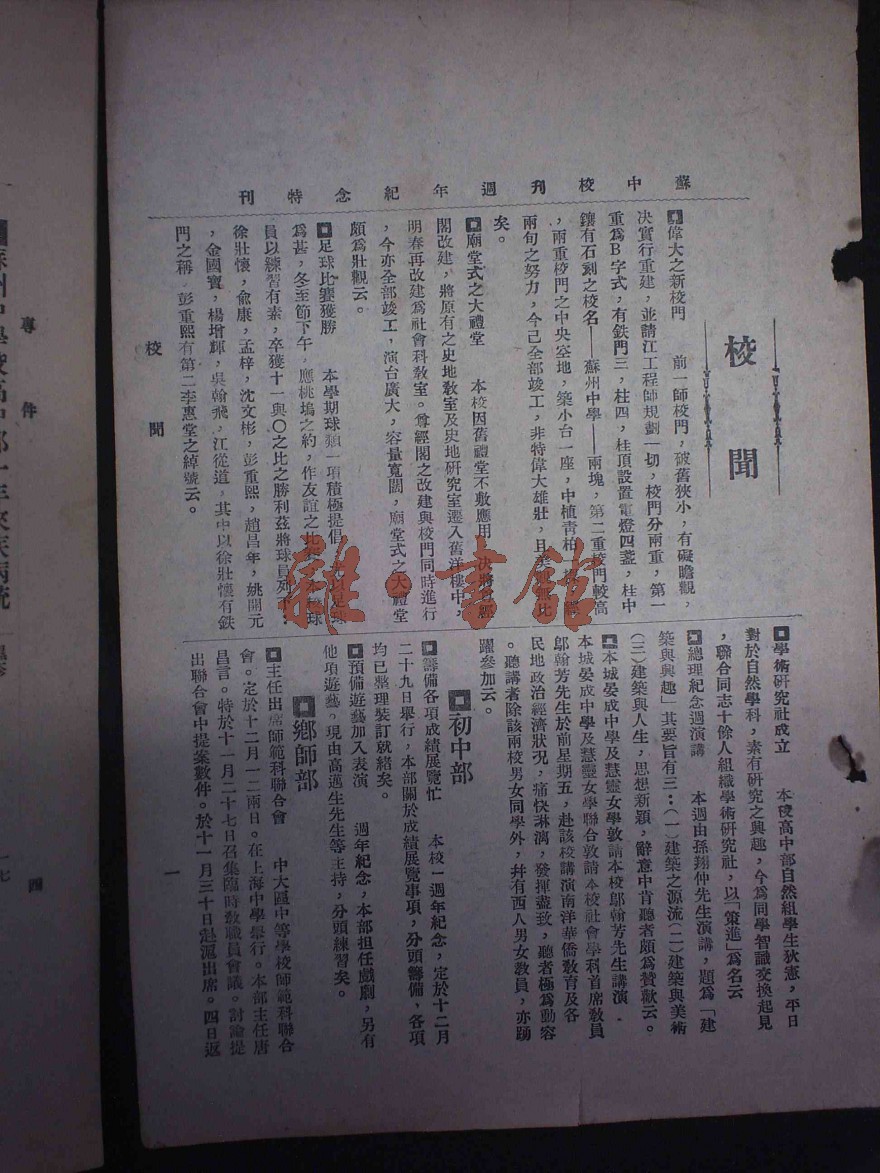 蘇中校刊週年紀念特刊
校聞
◘偉大之新校門　前一師校門，破舊狹小，有礙瞻觀，
決實行重建，並請江工程師規劃一切，校門分兩重，第一
重爲B字式，有鉄門三，柱四，柱頂設置電燈四盞，柱中
鑲有石刻之校名——蘇州中學——兩塊，第二重校門較高
，兩重校門之中央空地，築小台一座，中植青柏
兩旬之努力，今己全部竣工，非特偉大雄壯，且美
矣。
◘廟堂式之大禮堂　本校因舊禮堂不敷應用，決將
閣改建，將原有之史地敎室及史地研究室遷入舊洋樓中，
明春再改建爲社會科敎室。尊經閣之改建與校門同時進行
，今亦全部竣工，演台廣大，容量寬闊，廟堂式之大禮堂
頗爲壯觀云。
◘足球比賽獲勝　本學期球類一項積極提倡
爲甚，冬至節下午，應桃塢之約，作友誼之比賽
員以練習有素，卒獲十一與〇之比之勝利茲將球員列下：
徐壯懷，兪康，孟梓，沈文彬，彭重熙，趙昌年，姚開元
，金國寶，楊增輝，吳翰飛，江從道，其中以徐壯懷有鉄
門之稱，彭重熙有第二李惠堂之綽號云。
◘學術研究社成立　本校高中部自然組學生狄憲，平日
對於自然學科，素有研究之興趣，今爲同學智識交換起見
，聯合同志十餘人組織學術研究社，以「策進」爲名云
◘總理紀念週演講　本週由孫翔仲先生演講，題爲「建
築與興趣」其要旨有三：（一）建築之源流（二）建築與美術
（三）建築與人生，思想新穎，辭意中肯聽者頗爲贊歎云。
◘本城晏成中學及慧靈女學敦請本校鄔翰芳先生講演
本城晏成中學及慧靈女學聯合敦請本校社會學科首席敎員
鄔翰芳先生於前星期五，赴該校講演南洋華僑敎育及各
民地政治經濟狀況，痛快淋漓，發揮盡致，聽者極爲動容
。聽講者除該兩校男女同學外，幷有西人男女敎員，亦踴
躍參加云。
◘初中部
◘籌備各項成績展覽忙　本校一週年紀念，定於十二月
二十九日舉行，本部關於成績展覽事項，分頭籌備，各項
均已整理裝訂就緒矣。
◘預備遊藝加入表演　週年紀念，本部担任戲劇，另有
他項遊藝。現由高邁生先生等主持，分頭練習矣。
◘鄉師部
◘主任出席師範科聯合會　中大區中等學校師範科聯合
會。定於十二月一二兩日。在上海中學舉行。本部主任唐
昌言。特於十一月二十七日召集臨時敎職員會議。討論提
出聯合會中提案數件。於十一月三十日赴滬出席。四日返
校聞
一
專件
四
一七
雜·書館